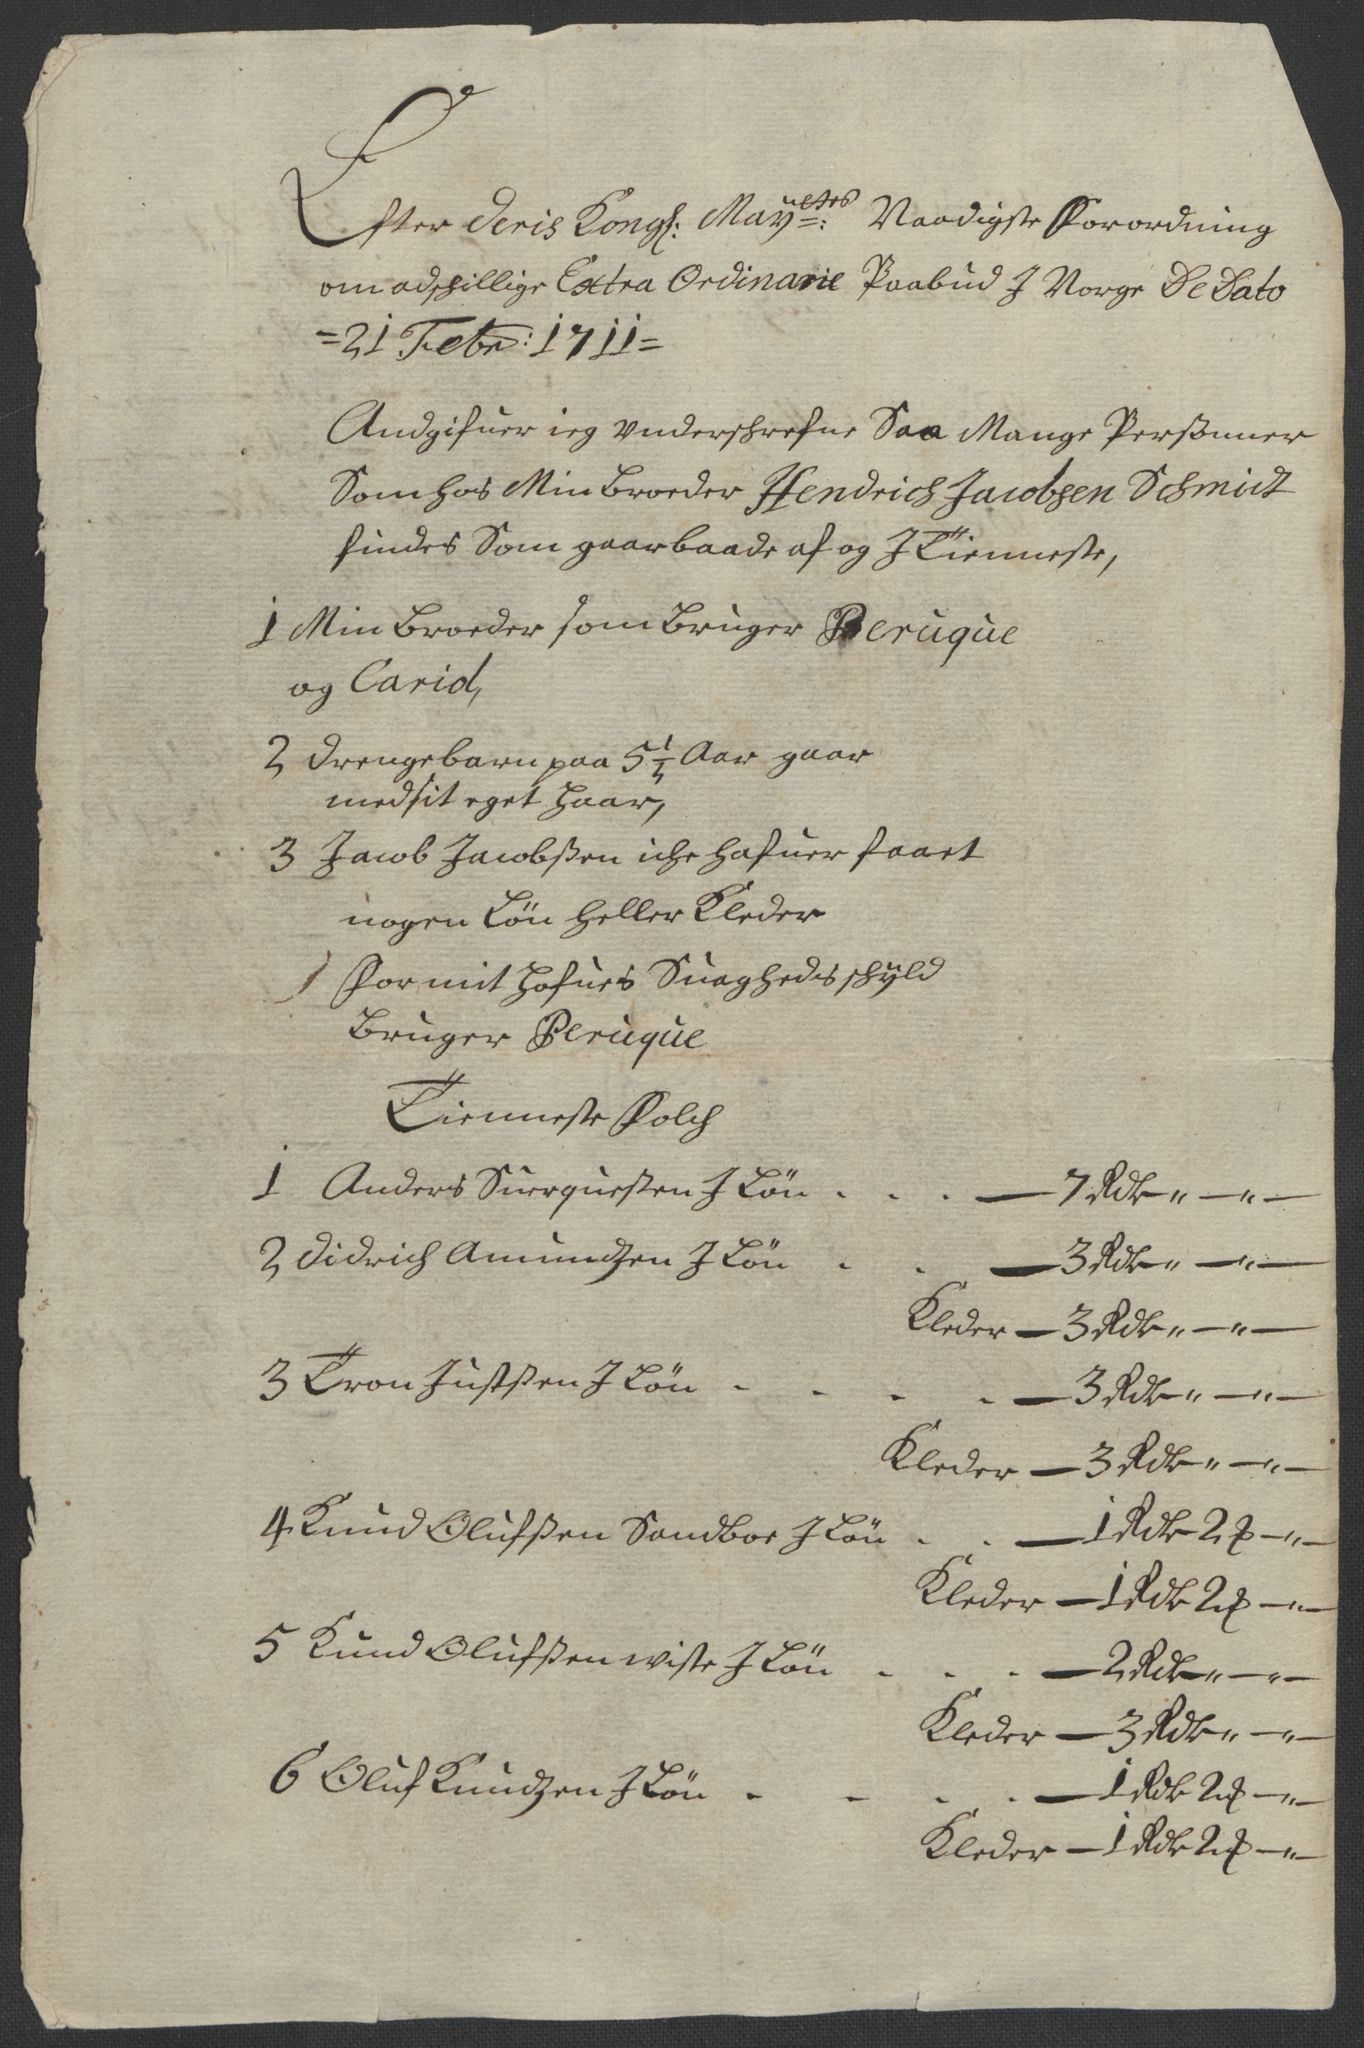 Efter deris Kongl: Mayestes: Naadigste Forordning
om adschillige Extra Ordinarie Paabud J Norge De Dato
=21 Febr: 1711=
Andgifuer ieg underschrefne Saa Mange Persohner
Som hos Min broeder Hendrich Jacobsen Schmidt
findes Som gaar baade af og J Tienneste,
1 Min broeder som bruger Peruque
og Cariol,
2 drengebarn paa 5 1/2 Aar gaar
med sit eget haar,
3 Jacob Jacobßen iche hafuer faaet
nogen Løn heller Kleder
) For mit hofuets Suagheds schyld
bruger Peruque
Tienneste Folch
1 Anders Suerqueßen J Løn . . . — 7 Rdr „ — „ —
2 didrich Amundzen J Løn . . — 3 Rdr „ — „ —
Kleder — 3 Rdr „ — „ —
3 Tron Justßen J Løn - - - - — 3 Rdr „ — „ —
Kleder — 3 Rdr „ — „ —
4 Knud Olufßen Sandboe J Løn . . — 1 Rdr 2 ℔ — „ —
Kleder — 1 Rdr 2 ℔ — „ —
5 Knud Olufßen wiste J Løn . . . — 2 Rdr „ — „ —
Kleder — 3 Rdr „ — „ —
6 Oluf Knudzen J Løn - - - . — 1 Rdr 2 ℔ — „ —
Kleder — 1 Rdr 2 ℔ — „ —